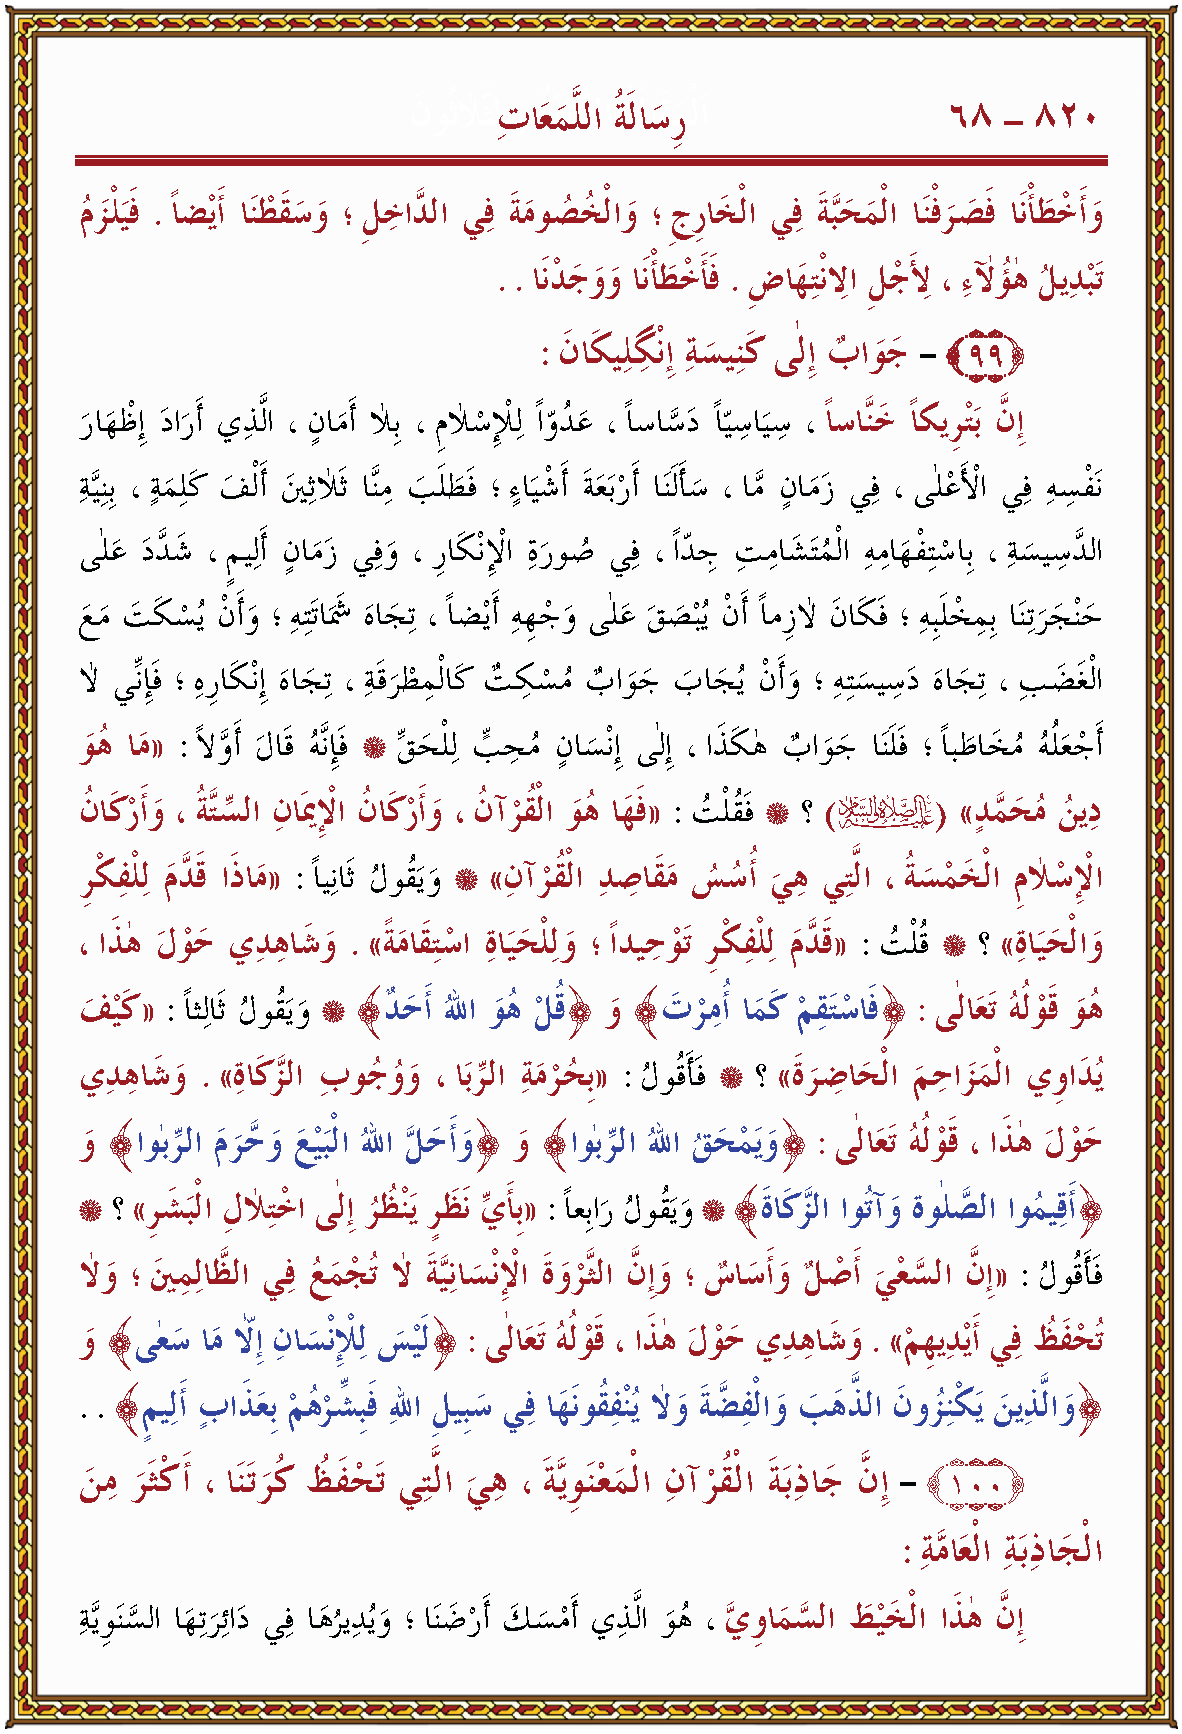 ٨٢٠ – ٦٨ رِسَالَةُ اللَّمَعَاتِ
وَأَخْطَأْنَا فَصَرَفْنَا الْمَحَبَّةَ فِي الْخَارِجِ ؛ وَالْخُصُومَةَ فِي الدَّاخِلِ ؛ وَسَقَطْنَا أَيْضاً . فَيَلْزَمُ
تَبْدِيلُ هٰؤُلَآءِ ، لِأَجْلِ الِانْتِهَاضِ . فَأَخْطَأْنَا وَوَجَدْنَا . .
﴿٩٩﴾ – جَوَابٌ إِلٰى كَنِيسَةِ إِنْگِلِيكَانَ :
إِنَّ بَتْرِيكاً خَنَّاساً ، سِيَاسِيّاً دَسَّاساً ، عَدُوّاً لِلْإِسْلَامِ ، بِلَا أَمَانٍ ، الَّذِي أَرَادَ إِظْهَارَ
نَفْسِهِ فِي الْأَعْلٰى ، فِي زَمَانٍ مَّا ، سَأَلَنَا أَرْبَعَةَ أَشْيَاءٍ ؛ فَطَلَبَ مِنَّا ثَلَاثِينَ أَلْفَ كَلِمَةٍ ، بِنِيَّةِ
الدَّسِيسَةِ ، بِاسْتِفْهَامِهِ الْمُتَشَامِتِ جِدّاً ، فِي صُورَةِ الْإِنْكَارِ ، وَفِي زَمَانٍ أَلِيمٍ ، شَدَّدَ عَلٰى
حَنْجَرَتِنَا بِمِخْلَبِهِ ؛ فَكَانَ لَازِماً أَنْ يُبْصَقَ عَلٰى وَجْهِهِ أَيْضاً ، تِجَاهَ شَمَاتَتِهِ ؛ وَأَنْ يُسْكَتَ مَعَ
الْغَضَبِ ، تِجَاهَ دَسِيسَتِهِ ؛ وَأَنْ يُجَابَ جَوَابٌ مُسْكِتٌ كَالْمِطْرَقَةِ ، تِجَاهَ إِنْكَارِهِ ؛ فَإِنِّي لَا
أَجْعَلُهُ مُخَاطَباً ؛ فَلَنَا جَوَابٌ هٰكَذَا ، إِلٰى إِنْسَانٍ مُحِبٍّ لِلْحَقِّ ۞ فَإِنَّهُ قَالَ أَوَّلاً : «مَا هُوَ
دِينُ مُحَمَّدٍ» (ﷺ) ؟ ۞ فَقُلْتُ : «فَهَا هُوَ الْقُرْآنُ ، وَأَرْكَانُ الْإِيمَانِ السِّتَّةُ ، وَأَرْكَانُ
الْإِسْلَامِ الْخَمْسَةُ ، الَّتِي هِيَ أُسُسُ مَقَاصِدِ الْقُرْآنِ» ۞ وَيَقُولُ ثَانِياً : «مَاذَا قَدَّمَ لِلْفِكْرِ
وَالْحَيَاةِ» ؟ ۞ قُلْتُ : «قَدَّمَ لِلْفِكْرِ تَوْحِيداً ؛ وَلِلْحَيَاةِ اسْتِقَامَةً» . وَشَاهِدِي حَوْلَ هٰذَا ،
هُوَ قَوْلُهُ تَعَالٰى : ﴿فَاسْتَقِمْ كَمَا أُمِرْتَ﴾ وَ ﴿قُلْ هُوَ اللهُ أَحَدٌ﴾ ۞ وَيَقُولُ ثَالِثاً : «كَيْفَ
يُدَاوِي الْمَزَاحِمَ الْحَاضِرَةَ» ؟ ۞ فَأَقُولُ : «بِحُرْمَةِ الرِّبَا ، وَوُجُوبِ الزَّكَاةِ» . وَشَاهِدِي
حَوْلَ هٰذَا ، قَوْلُهُ تَعَالٰى : ﴿وَيَمْحَقُ اللهُ الرِّبٰوا﴾ وَ ﴿وَأَحَلَّ اللهُ الْبَيْعَ وَحَّرَمَ الرِّبٰوا﴾ وَ
﴿أَقِيمُوا الصَّلٰوةَ وَآتُوا الزَّكَاةَ﴾ ۞ وَيَقُولُ رَابِعاً : «بِأَيِّ نَظَرٍ يَنْظُرُ إِلٰى اخْتِلَالِ الْبَشَرِ» ؟ ۞
فَأَقُولُ : «إِنَّ السَّعْيَ أَصْلٌ وَأَسَاسٌ ؛ وَإِنَّ الثَّرْوَةَ الْإِنْسَانِيَّةَ لَا تُجْمَعُ فِي الظَّالِمِينَ ؛ وَلَا
تُحْفَظُ فِي أَيْدِيهِمْ» . وَشَاهِدِي حَوْلَ هٰذَا ، قَوْلُهُ تَعَالٰى : ﴿لَيْسَ لِلْإِنْسَانِ إِلَّا مَا سَعٰى﴾ وَ
﴿وَالَّذِينَ يَكْنِزُونَ الذَّهَبَ وَالْفِضَّةَ وَلَا يُنْفِقُونَهَا فِي سَبِيلِ اللهِ فَبِشِّرْهُمْ بِعَذَابٍ أَلِيمٍ﴾ . .
﴿١٠٠﴾ – إِنَّ جَاذِبَةَ الْقُرْآنِ الْمَعْنَوِيَّةَ ، هِيَ الَّتِي تَحْفَظُ كُرَتَنَا ، أَكْثَرَ مِنَ
الْجَاذِبَةِ الْعَامَّةِ :
إِنَّ هٰذَا الْخَيْطَ السَّمَاوِيَّ ، هُوَ الَّذِي أَمْسَكَ أَرْضَنَا ؛ وَيُدِيرُهَا فِي دَائِرَتِهَا السَّنَوِيَّةِ